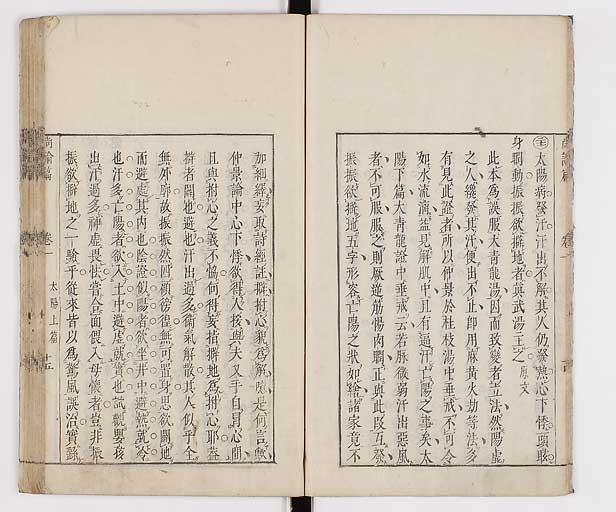 太陽病發汗汗出不解其人仍發熱心下悸頭眩
身瞤動振振欲擗地者真武湯主之 原文
此本為誤服大青龍湯因而致變者立法然陽虛
之人纔發其汗便出不止即用麻黃火劫等法多
有見此證者所以仲景於桂枝湯中垂戒不可令
如水流漓益見解肌中且有逼汗亡陽之事矣太
陽下篇大青龍證中垂戒云若脈微弱汗出惡風
者不可服服之則厥逆筋惕肉瞤正與此段互發
振振欲擗地五字形容亡陽之狀如繪諸家竟不
加細繹妄取詩經註擗拊心貌為解噫是何言歟
仲景論中心下悸欲得人按與夫叉手自冒心間
且與拊心之義不協何得妄指擗地為拊心耶蓋
擗者闢也避也汗出過多衛氣解散其人似乎全
無外廓故振振然四顧徬徨無可置身思欲闢地
而避處其内也陰證似陽者欲坐井中避熱就冷
也汗多亡陽者欲入土中避虛就實也試觀嬰孩
出汗過多神虛畏怯嘗合面偎入母懷者豈非振
振欲擗地之一驗乎從來皆以為驚風誤治實繇
尚論篇 卷一 太陽上篇